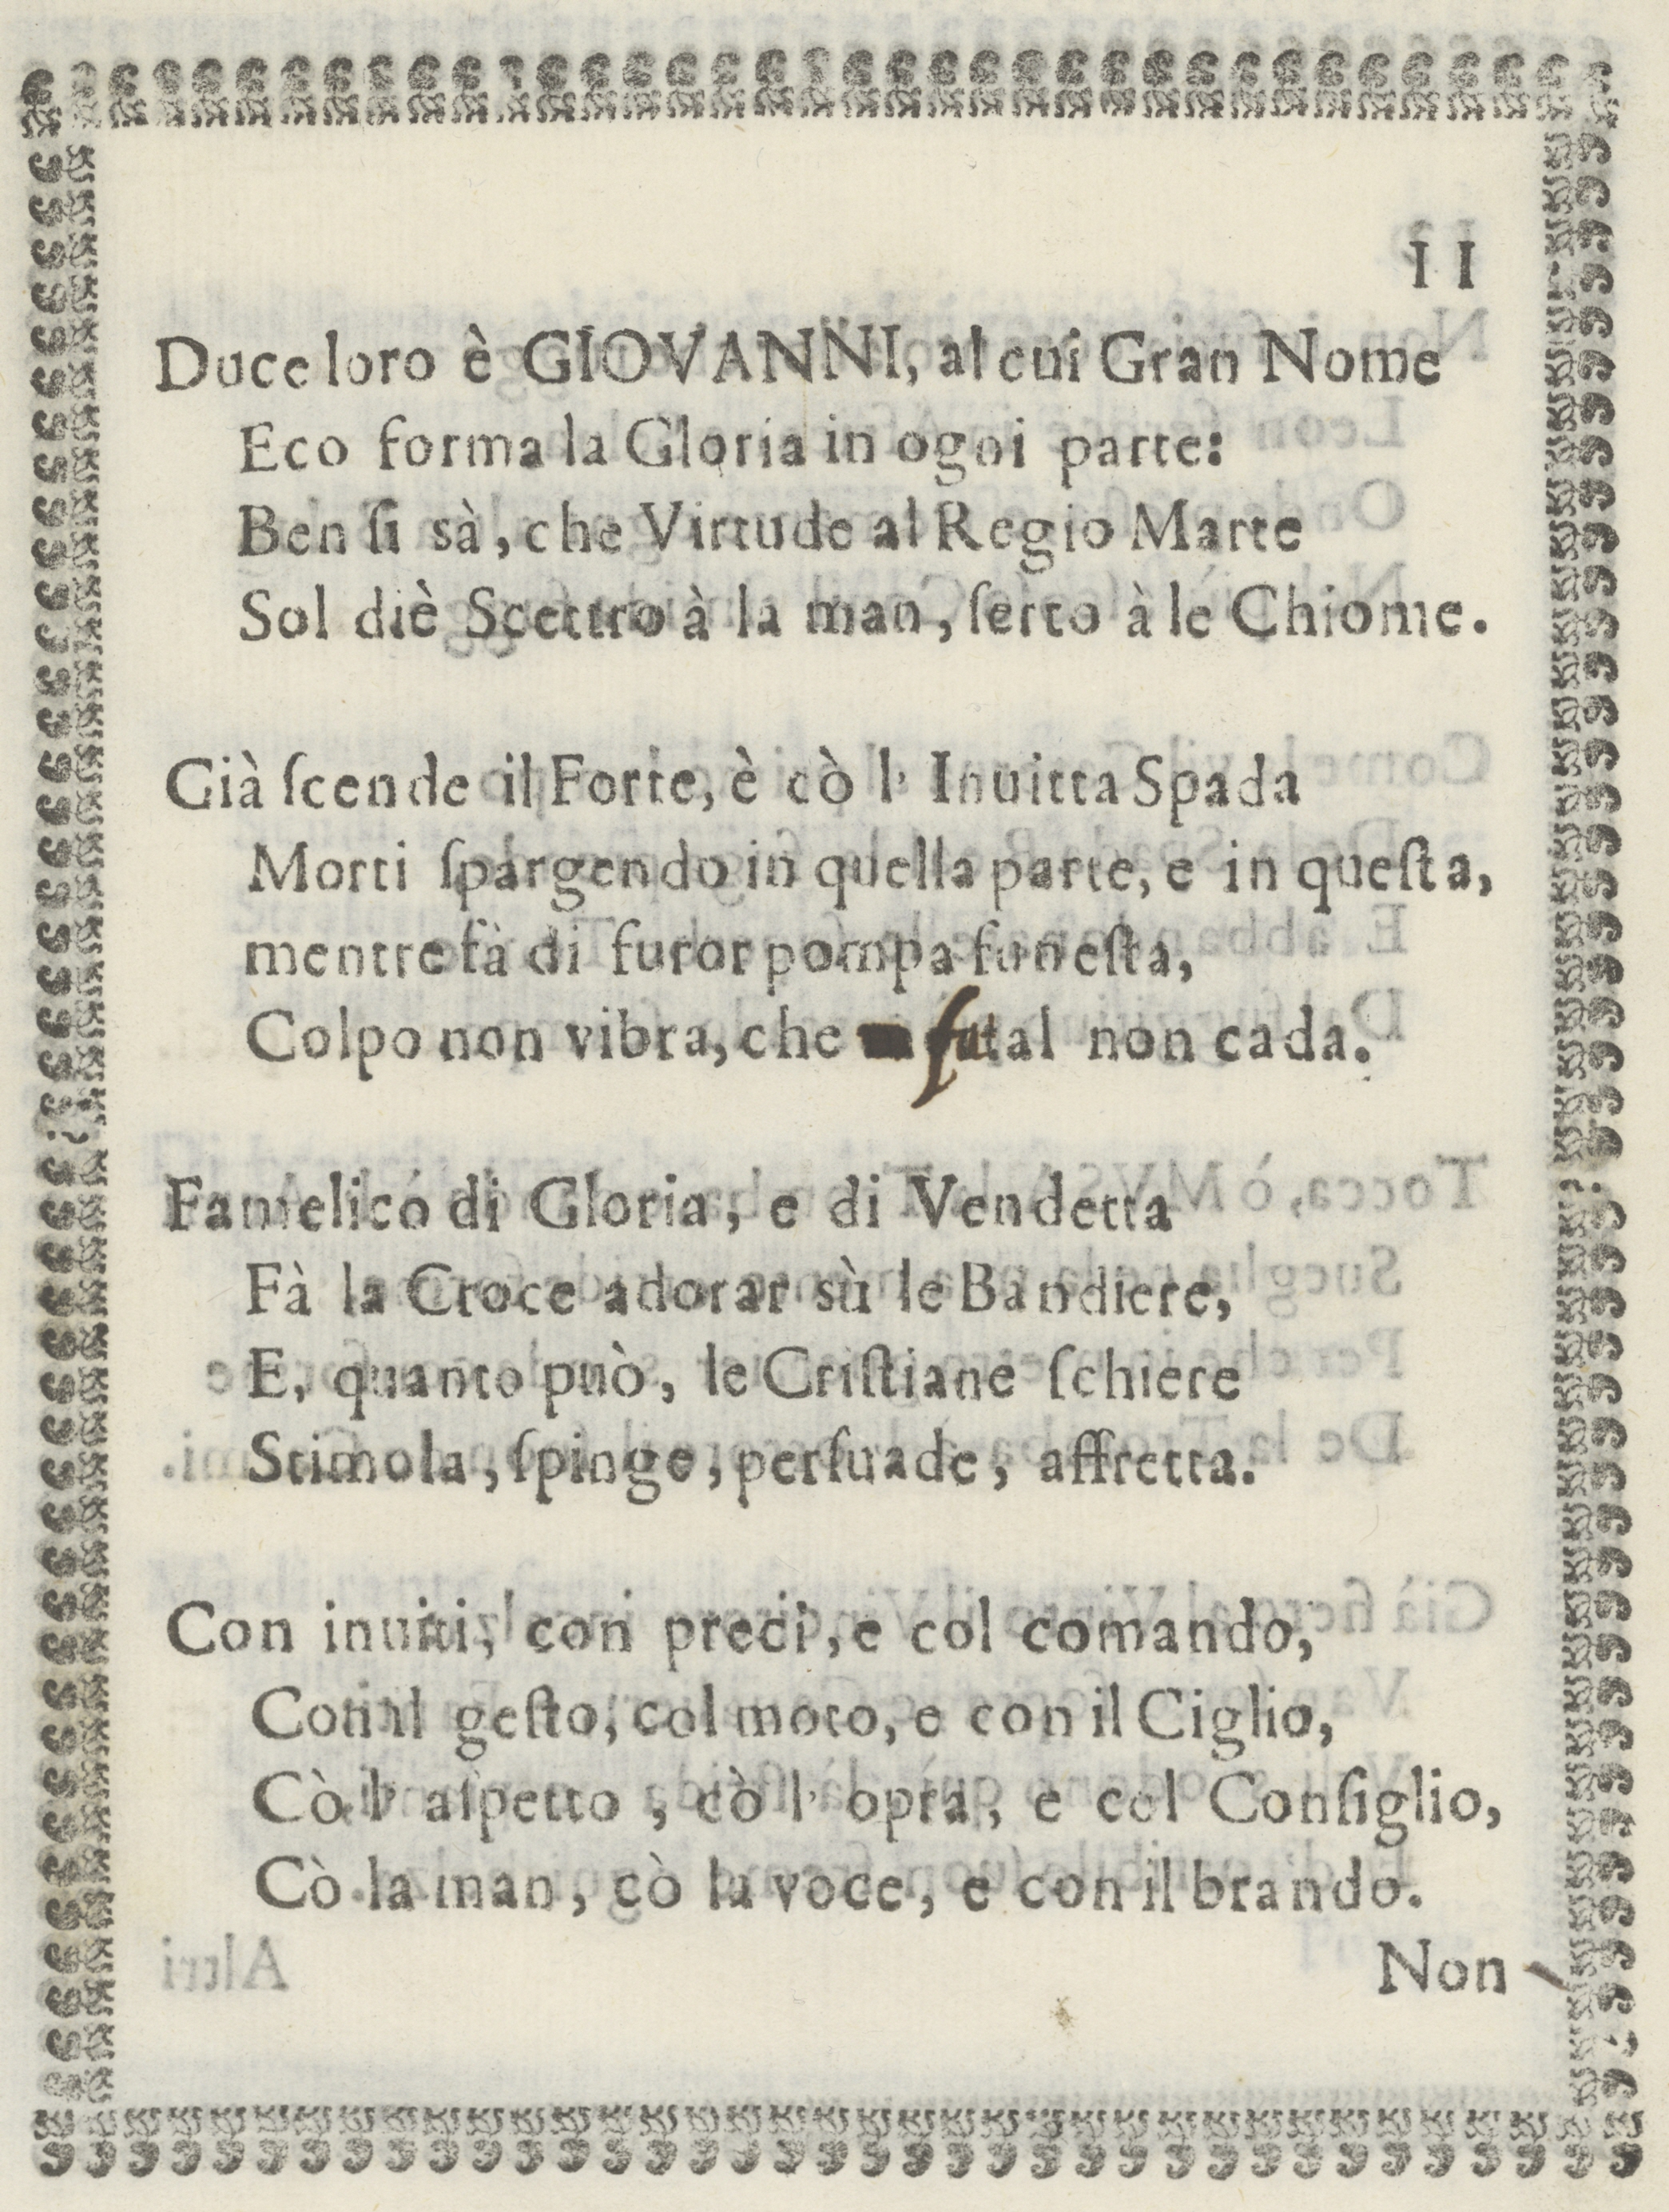 11
Duce loro è GIOVANNI, al cui Gran Nome
Eco forma la Gloria in ogni parte:
Ben ſi sà, che Virtude al Regio Marte
Sol diè Scettro à la man, ſerto à le Chiome.
Già ſcende il Forte, è cò l' Inuitta Spada
Morti ſpargendo in quella parte, e in queſta,
mentre fà di furor pompa funeſta,
Colpo non vibra, che fatal non cada.
Famelico di Gloria, e di Vendetta
Fà la Croce adorar sù le Bandiere,
E, quanto può, le Criſtiane ſchiere
Stimola, ſpinge, perſuade, affretta.
Con inuiti, con preci, e col comando,
Con il geſto, col moto, e con il Ciglio,
Cò l' aſpetto, cò l' opra, e col Conſiglio,
Cò la man, cò la voce, e con il brando.
Non